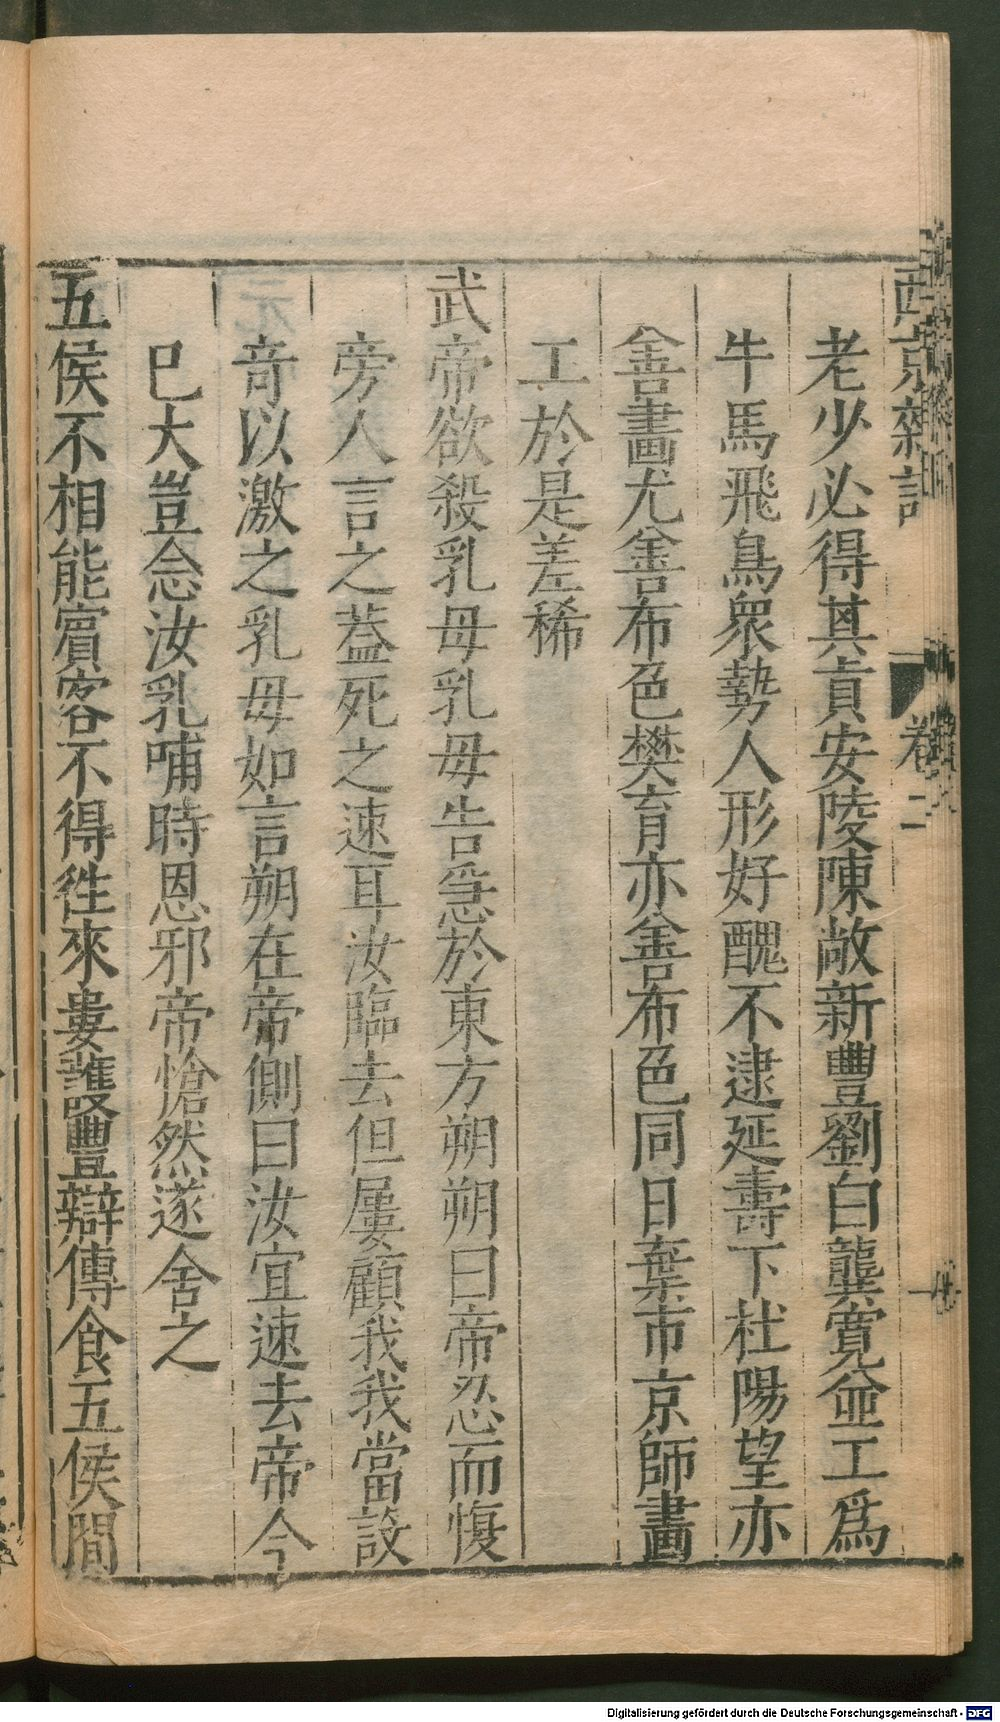 西京雜記 卷二
老少必得其真安陵陳敞新豐劉白龔寬並工爲
牛馬飛鳥衆勢人形好醜不逮延壽下杜陽望亦
善畫尤善布色樊育亦善布色同日棄市京師畫
工於是差稀
武帝欲殺乳母乳母告急於東方朔朔曰帝忍而愎
旁人言之葢死之速耳汝臨去但屢顧我我當設
竒以激之乳母如言朔在帝側曰汝宜速去帝今
已大豈念汝乳哺時恩邪帝愴然遂舍之
五侯不相能賓客不得徃來婁護豐辯傳食五侯間
Digitalisierung gefördert durch die Deutsche Forschungsgemeinschaft - DFG